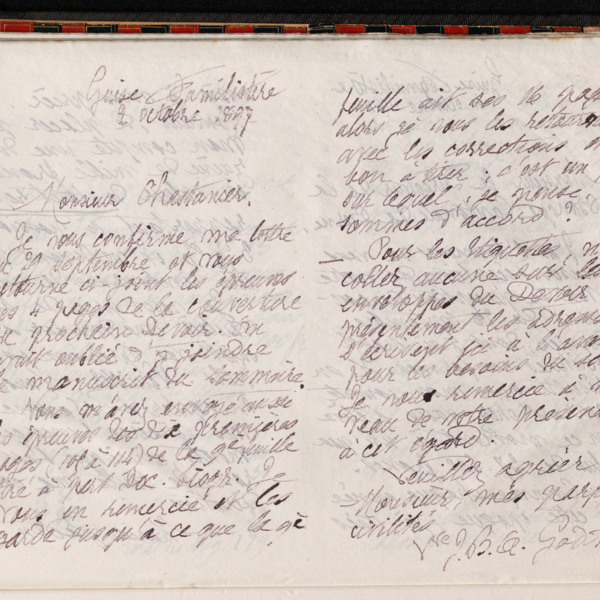 Guise Familistère
2 octobre 1897
Monsieur Chestanier,
Je vous confirme ma lettre
du 29 septembre et vous
retourne ci-joint les épreuves
des 4 pages de la couverture
du prochain Devoir. On
avait oublié d'y joindre
le manuscrit du sommaire.
Vous m'avez envoyé aussi
les épreuves des dix premières
pages (105 à 114) de la 8e feuille
à part Doc. biogr. Je
vous en remercie et les
garde jusqu'à ce que la 8e
feuille ait ses 16 pages
alors je vous les retourne
avec les corrections et
bon à tirer ; c'est un
sur lequel, je pense
sommes d'accord ?
— Pour les étiquettes, n'
coller aucune sur les
enveloppes du Devoir
présentement les adresses
s'écrivent ici à l'avan
pour les besoins du se
Je vous remercie à
veau de votre préven
à cet égard.
Veuillez agréer
Monsieur, mes parf
civilités
Vve J. B. A. Godin